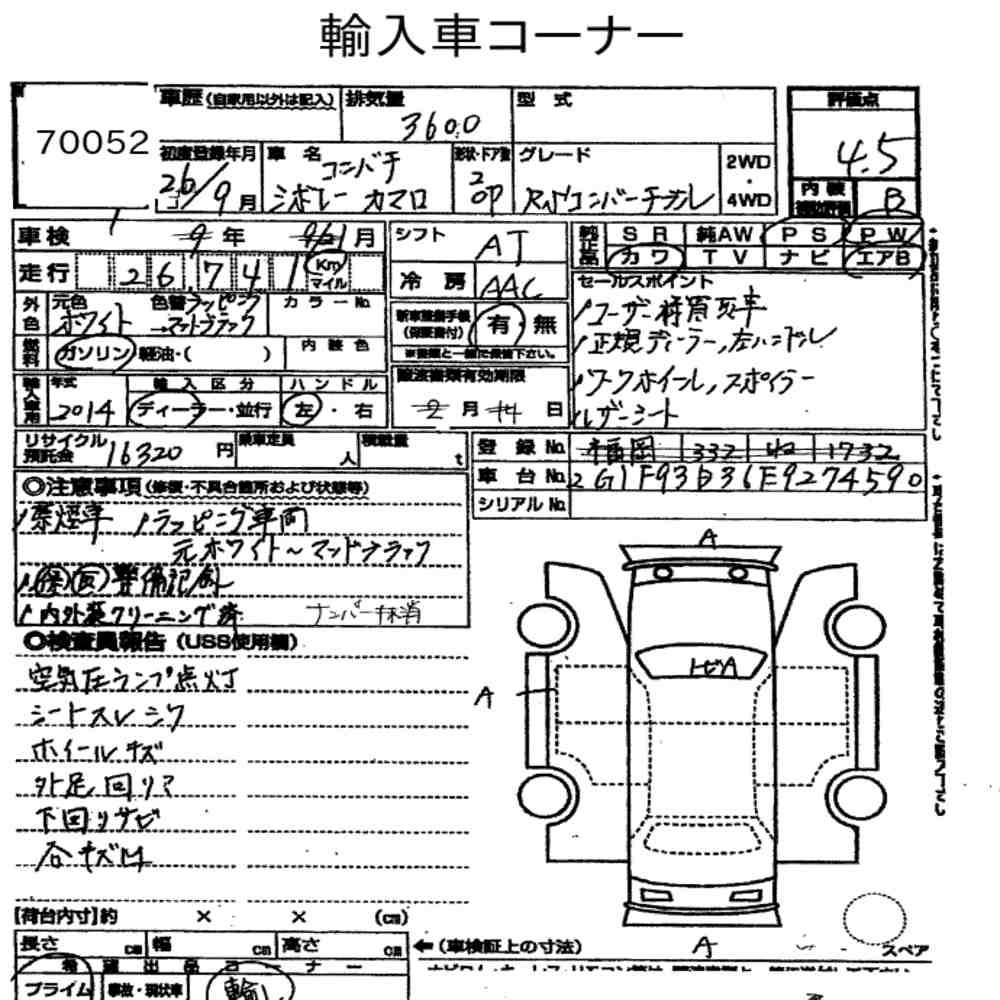 輸入車コーナー
70052
車歴(自家用以外は記入) 排気量 3600 型式
評価点 4.5
初度登録年月 26/9月 車名 コンバチ シボレー カマロ 形状・ドア数 2 OP グレード RSコンバーチブル 2WD・4WD
内装 B
車検 9年 月
シフト AT
純正品 SR 純AW PS PW
カワ TV ナビ エアB
走行 26,741 Km マイル
冷房 AAC
セールスポイント
外色 元色 ホワイト 色替ラッピング →マットブラック カラーNo.
新車整備手帳(保証書付) 有・無
※書類と一緒に後納下さい。
ユーザー様買取車
正規ディーラー,左ハンドル
燃料 ガソリン・軽油・( ) 内装色
譲渡書類有効期限
2月14日
ワークホイール,スポイラー
レザーシート
輸入車用 年式 2014 輸入区分 ディーラー・並行 ハンドル 左・右
リサイクル預託金 16320円 乗車定員 人 積載量 t
登録No. 福岡 332 1732
車台No. 2G1F93D36E9274590
シリアルNo.
◎注意事項(修復・不具合箇所および状態等)
禁煙車 ラッピング車両
元ホワイト〜マットブラック
保 取 整備記録
内外装クリーニング済 ナンバー抹消
◎検査員報告(USS使用欄)
空気圧ランプ点灯
シートスレ シワ
ホイールキズ
外足回りア
下回りサビ
各キズ凹
A
トビA
A
A
スペア
[荷台内寸]約 × × (cm)
長さ cm 幅 cm 高さ cm
←(車検証上の寸法)
希望出品コーナー
プライム 事故・現状車 輸し